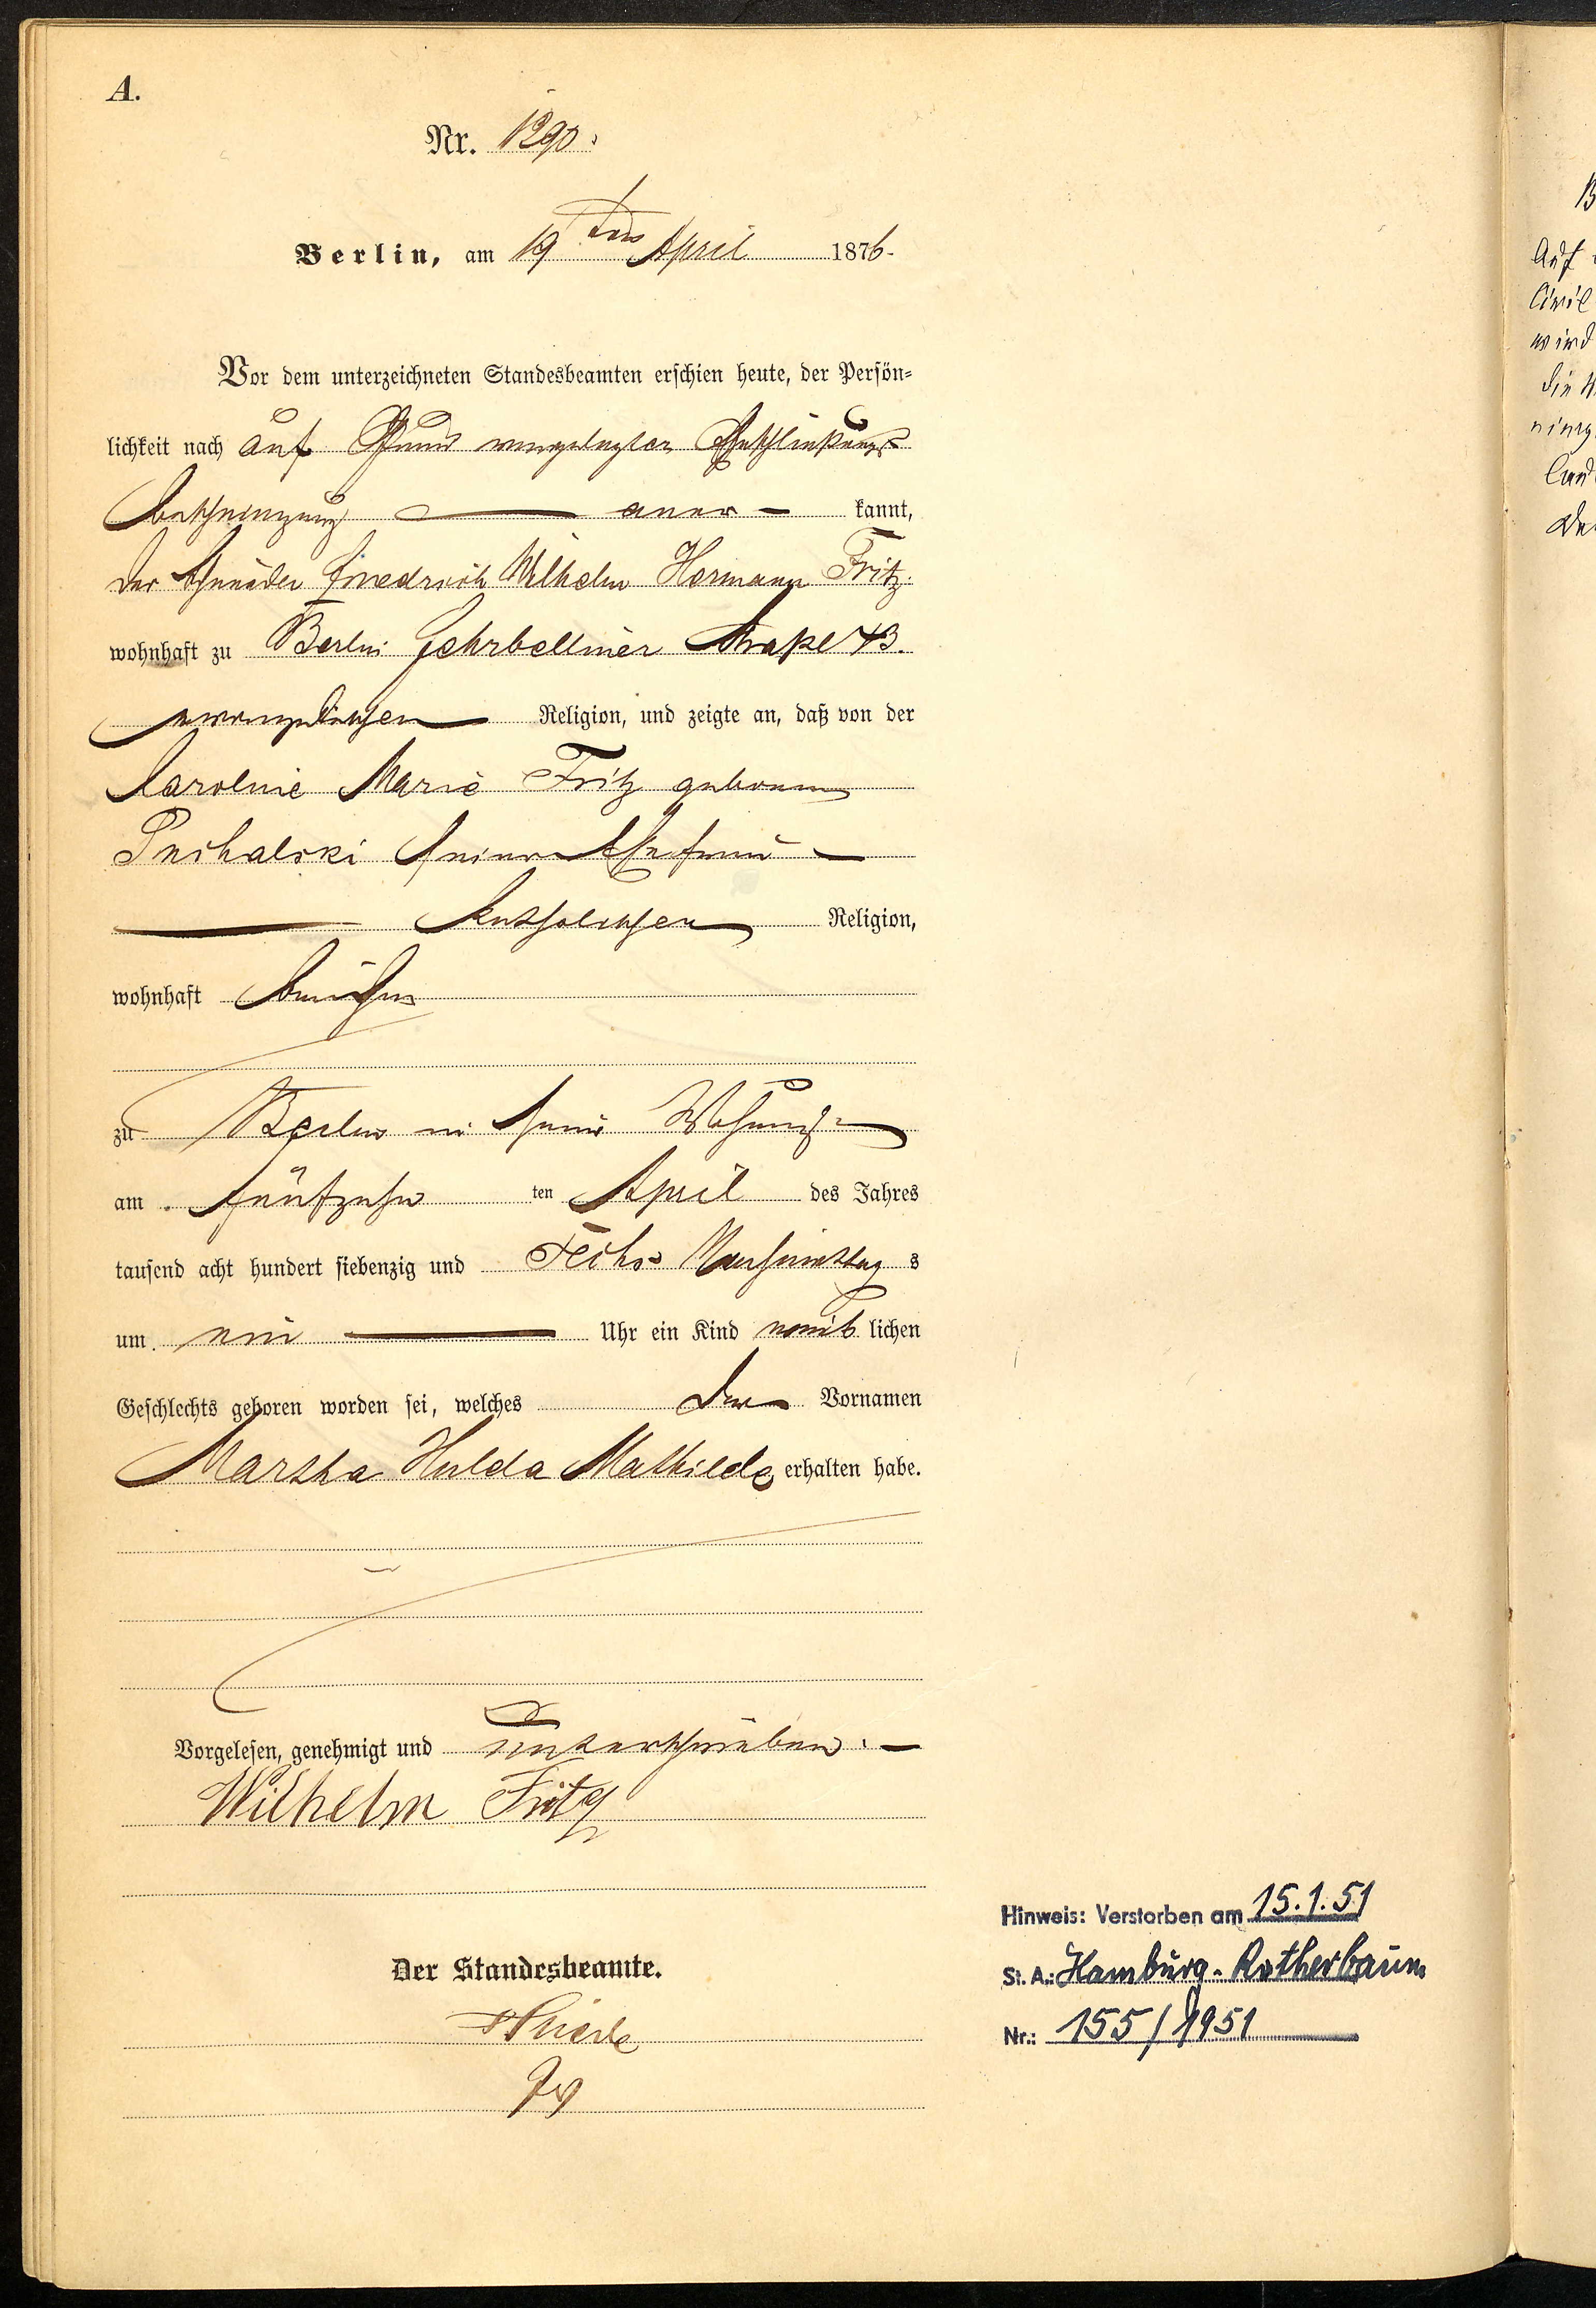 A.
Nr. 1290.
Berlin, am 19 ten April 1876.
Vor dem unterzeichneten Standesbeamten erschien heute, der Persön-
lichkeit nach auf Grund vorgelegter Eheschließungs-
bescheinigung aner- kannt,
der Friedrich Wilhelm Hermann Fritz
wohnhaft zu Berlin Fehrbelliner Straße 43.
evangelischer Religion, und zeigte an, daß von der
Caroline Marie Fritz geborenen
Puchalski seiner Ehefrau
katholischer Religion,
wohnhaft bei ihm
zu Berlin in seiner Wohnung
am fünfzehn ten April des Jahres
tausend acht hundert siebenzig und sechs Nachmittag s
um ein Uhr ein Kind weib lichen
Geschlechts geboren worden sei, welches die Vornamen
Martha Hulda Mathilde erhalten habe.
Vorgelesen, genehmigt und unterschrieben.
Wilhelm Fritz
Der Standesbeamte.
Hinweis: Verstorben am 15.1.51
St. A.: Hamburg-Rotherbaum
Nr.: 155/1951
Auf
Civil
wird